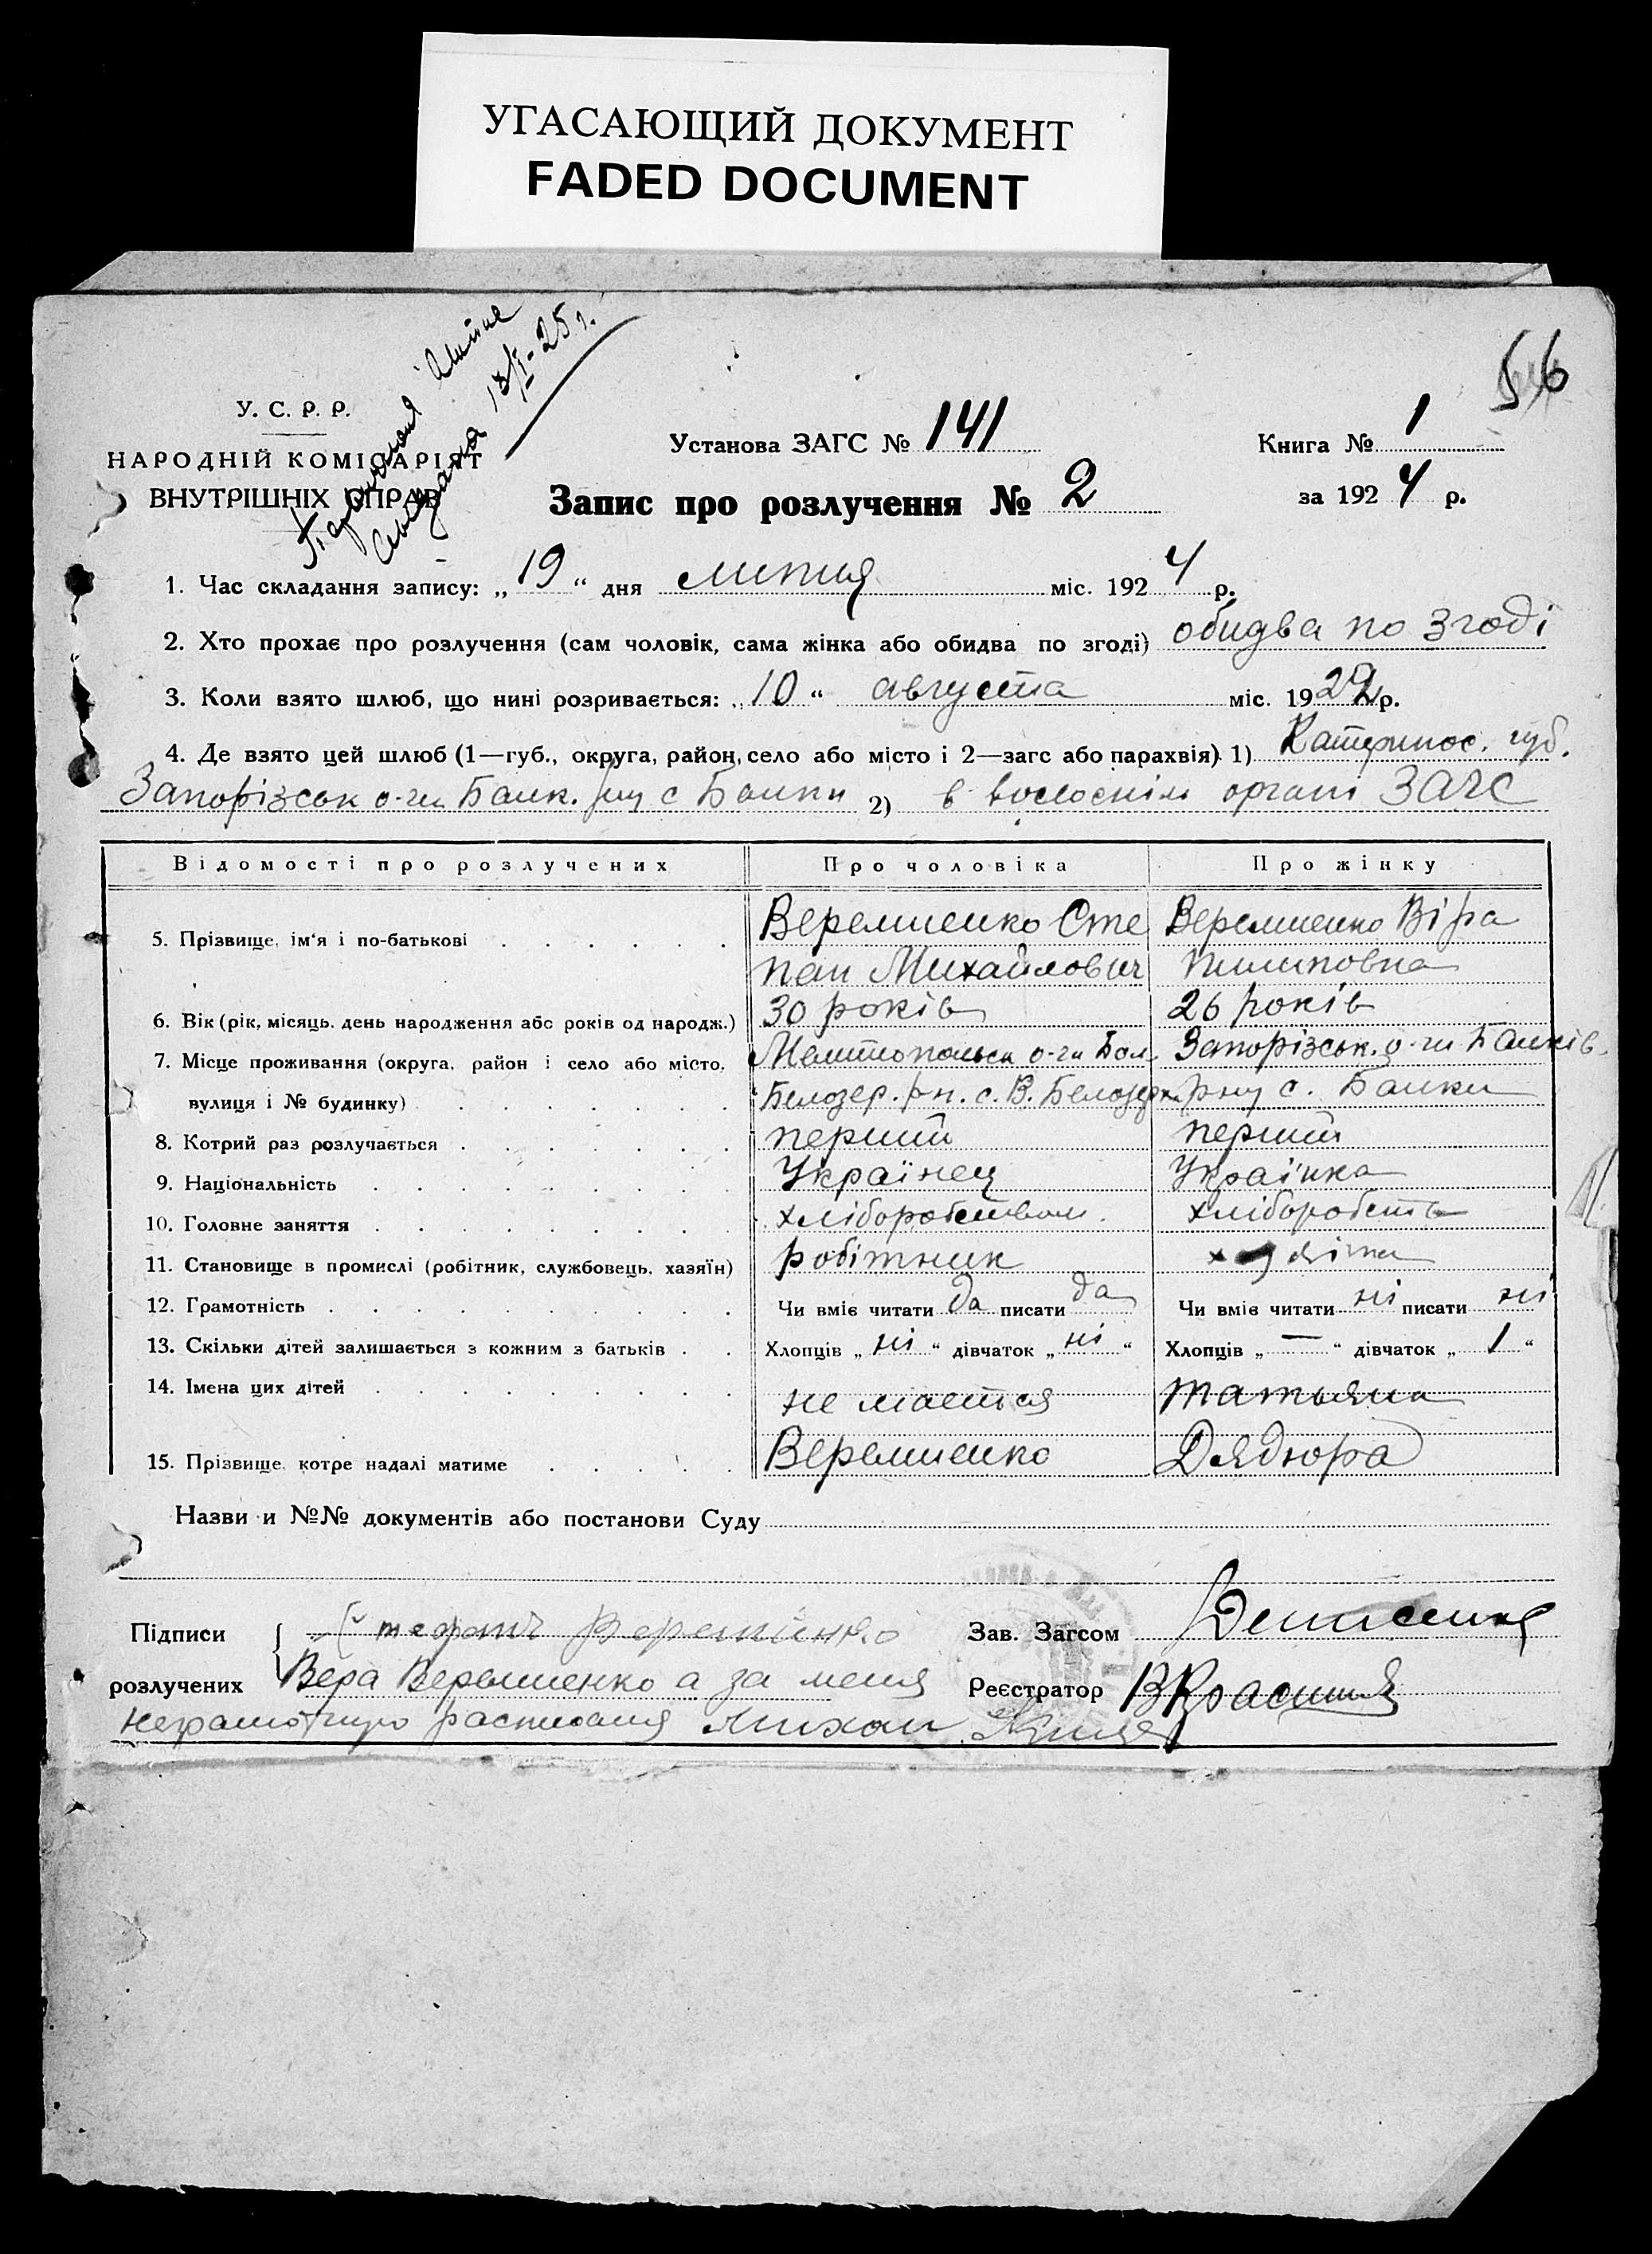 УГАСАЮЩИЙ ДОКУМЕНТ
FADED DOCUMENT
56
13/I-25 г.
У. С. Р. Р.
НАРОДНІЙ КОМІСАРІЯТ
ВНУТРІШНІХ СПРАВ
Установа ЗАГС № 141
Книга № 1
за 1924 р.
Запис про розлучення № 2
1. Час складання запису: „19“ дня липня міс. 1924 р.
2. Хто прохає про розлучення (сам чоловік, сама жінка або обидва по згоді) обидва по згоді
3. Коли взято шлюб, що нині розривається: „10“ августа міс. 1922 р.
4. Де взято цей шлюб (1—губ., округа, район, село або місто і 2—загс або парахвія) 1) Катеринос. губ.
Запорізськ о-ги Балк. р-ну с Балки 2) в волоснім органі ЗАГС
Відомості про розлучених Про чоловіка Про жінку
5. Прізвище, ім'я і по-батькові Веремиенко Сте Веремиенко Віра
пан Михайлович Пилиповна
6. Вік (рік, місяць, день народження або років од народж.) 30 років 26 років
7. Місце проживання (округа, район і село або місто, Мелитопольск о-ги Бол. Запорізськ. о-ги Балків.
вулиця і № будинку) Белозер. р-н. с. В. Белозерк. р-ну с. Балки
8. Котрий раз розлучається перший перший
9. Національність Українец Українка
10. Головне заняття хліборобством. хліборобств
11. Становище в промислі (робітник, службовець, хазяїн) робітник
12. Грамотність Чи вміє читати да писати да Чи вміє читати ні писати ні
13. Скільки дітей залишається з кожним з батьків Хлопців „ні“ дівчаток „ні“ Хлопців „—“ дівчаток „1“
14. Імена цих дітей не мается Татьяна
15. Прізвище, котре надалі матиме Веремиенко Дядюра
Назви и №№ документів або постанови Суду
Підписи Стефанъ Веремиенко Зав. Загсом
розлучених Вера Веремиенко а за меня Реєстратор
неграмотную расписался Михаил